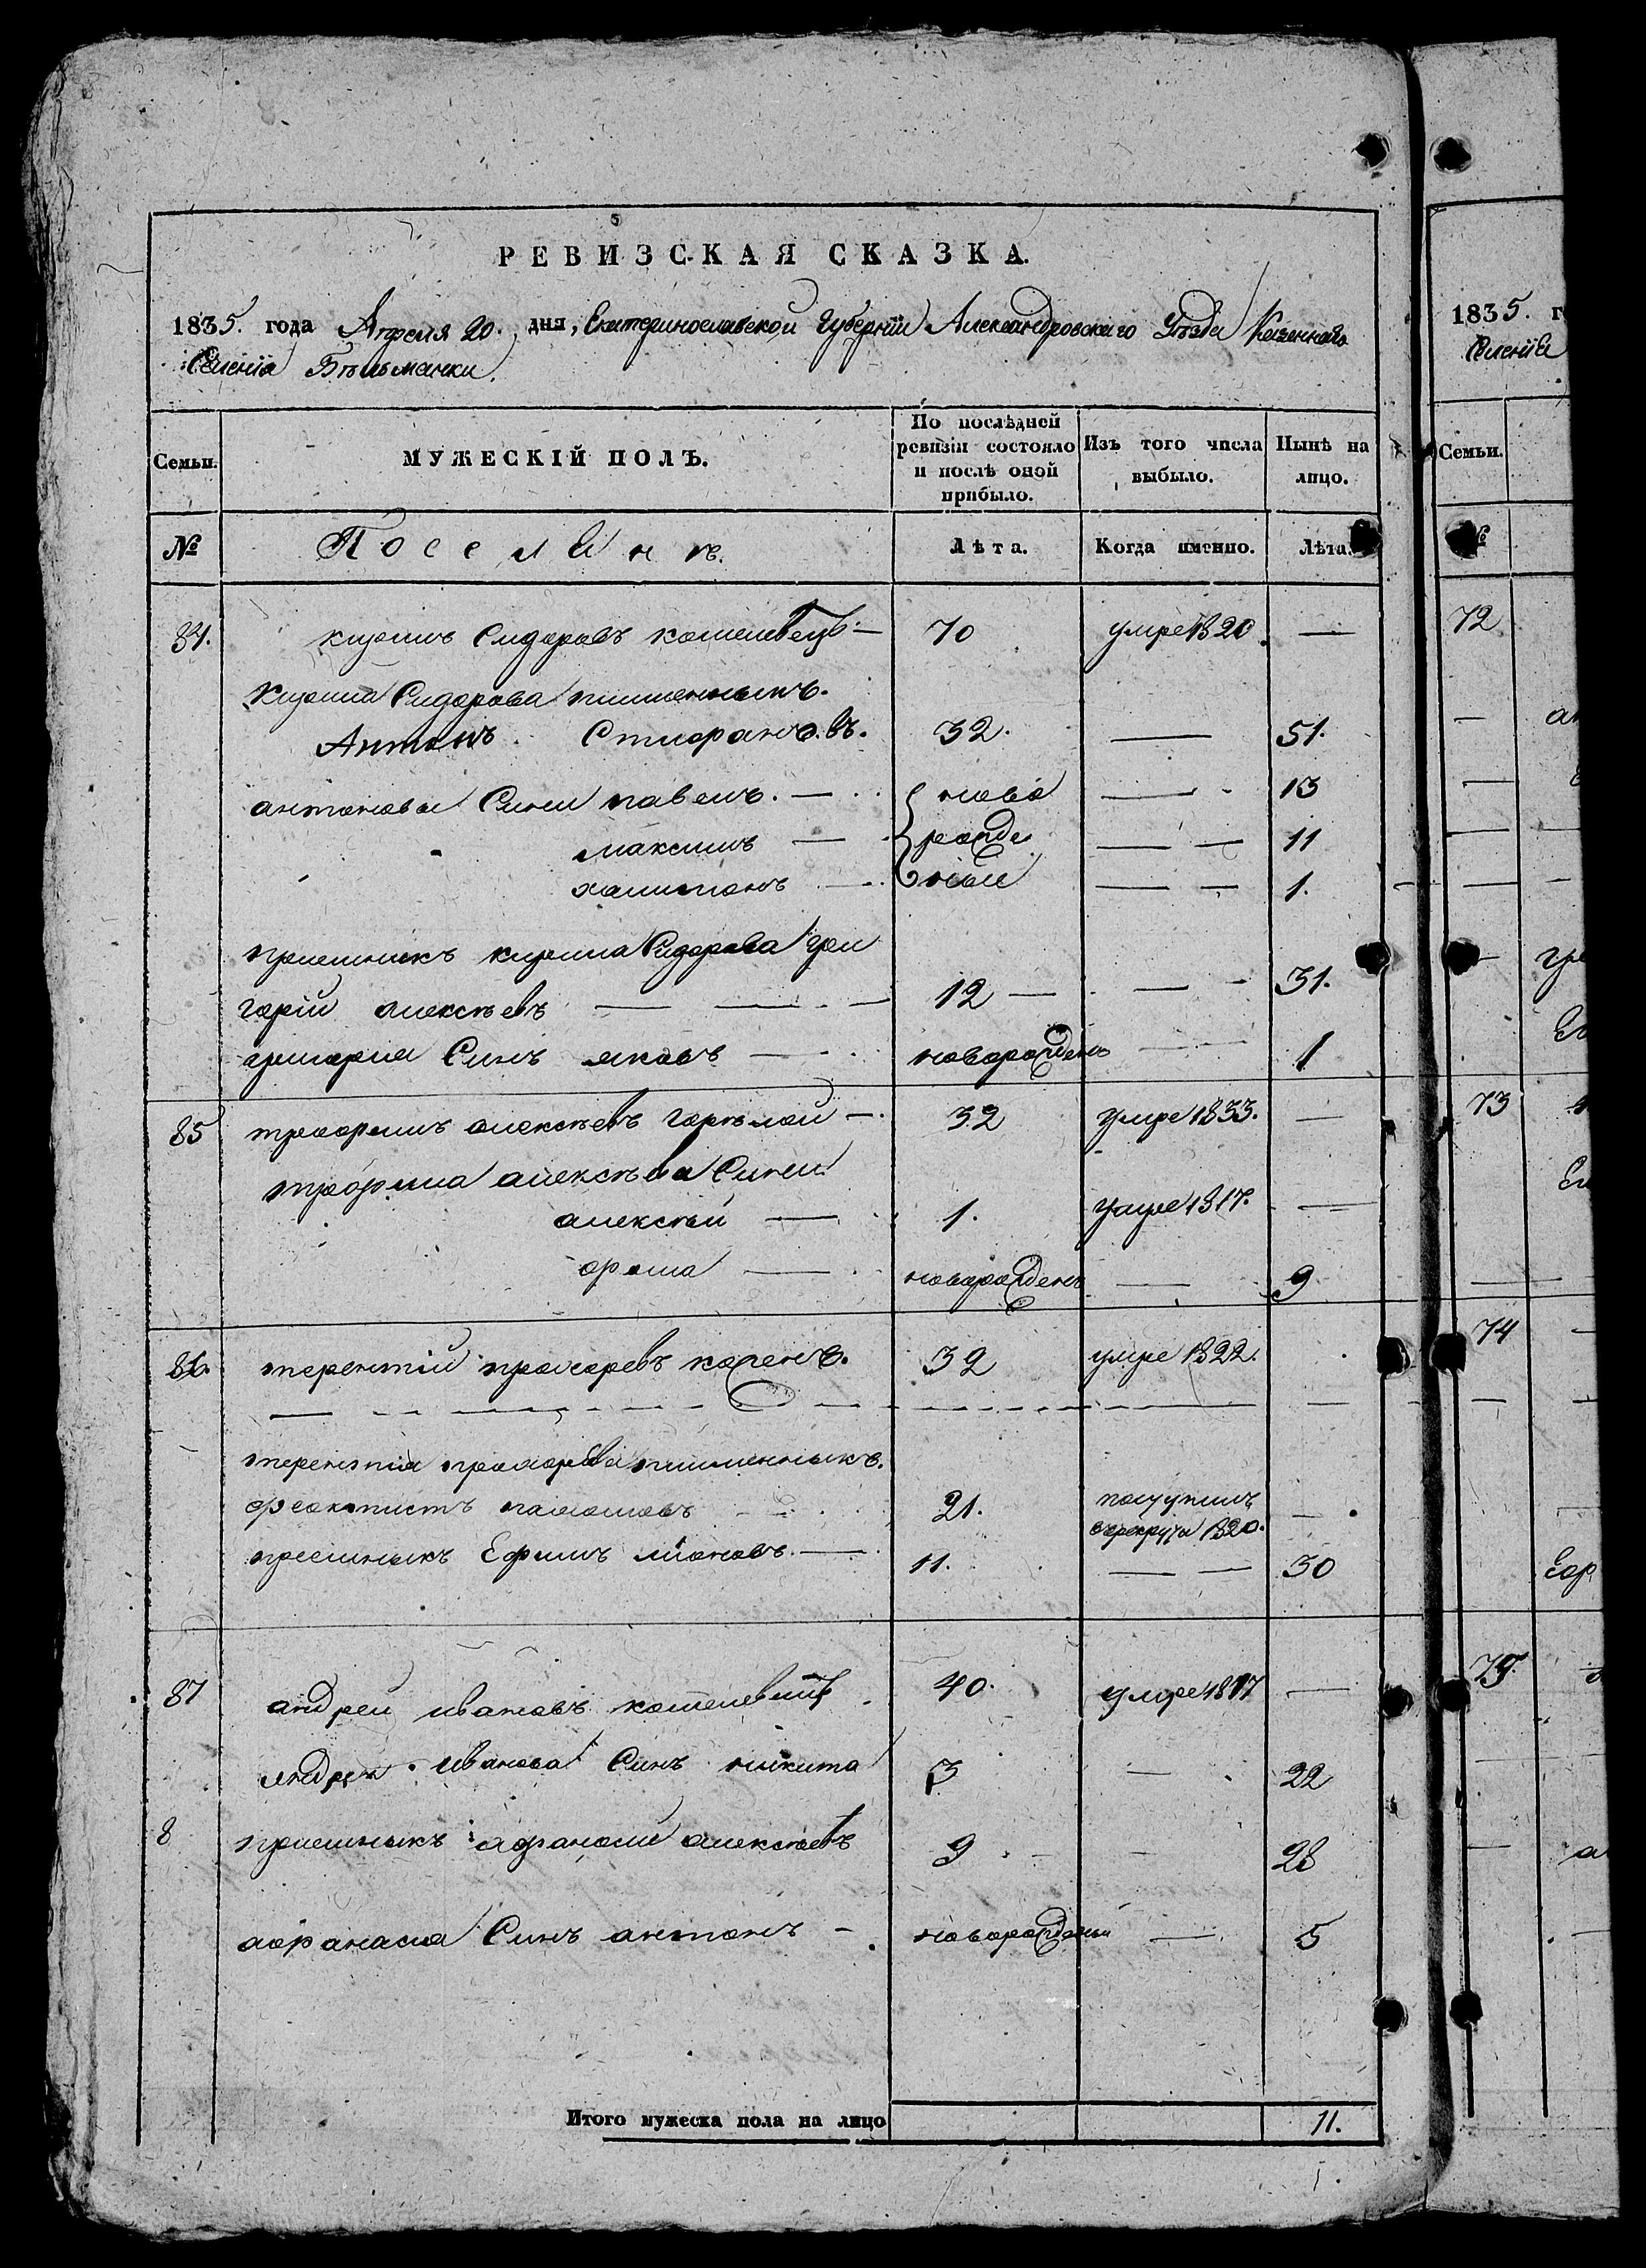 РЕВИЗСКАЯ СКАЗКА.
1835. года Апреля 20. дня, Екатеринославской Губернии Александровскаго Уѣзда Казеннаго
Селенія Бѣльманки.
Семьи. МУЖЕСКІЙ ПОЛЪ. По послѣдней ревизіи состояло и послѣ оной прибыло. Изъ того числа выбыло. Нынѣ на лицо.
№ Поселянъ. Лѣта. Когда именно. Лѣта.
84. кирилъ Сидоровъ кошевецъ — 70 умре 1820 —
Кирила Сидорова племенныкъ.
Антонъ 32. — 51.
антоновы Сыни павелъ. — ново — 13
максимъ — рожде — 11
харитонъ — ный — 1.
приемникъ кирила Сидорова гри
горій алексѣевъ — 12 — 31.
григория Синъ яковъ — новорожденъ — 1
85 трофимъ алексѣевъ горѣлой — 32 умре 1833. —
трофима алексѣева Сини
алексѣй — 1. умре 1817. —
фома — новорожденъ — 9
86. терентій прохоровъ коженъ. 32 умре 1822.
терентія прохорова племенныкъ.
феоктистъ 21. поступилъ —
в рекруты 1820.
приемныкъ Ефимъ — 11. — 30
87 андрей ивановъ 40. умре 1817 —
андрея Иванова Синъ никита 3 — 22
8 приемныкъ афанасий алексѣевъ 9 — 28
афанасия Синъ антонъ — новорожденый — 5
Итого мужеска пола на лицо 11.
1835. г
Селенія
Семьи.
№
72
73
74
Еф
75.